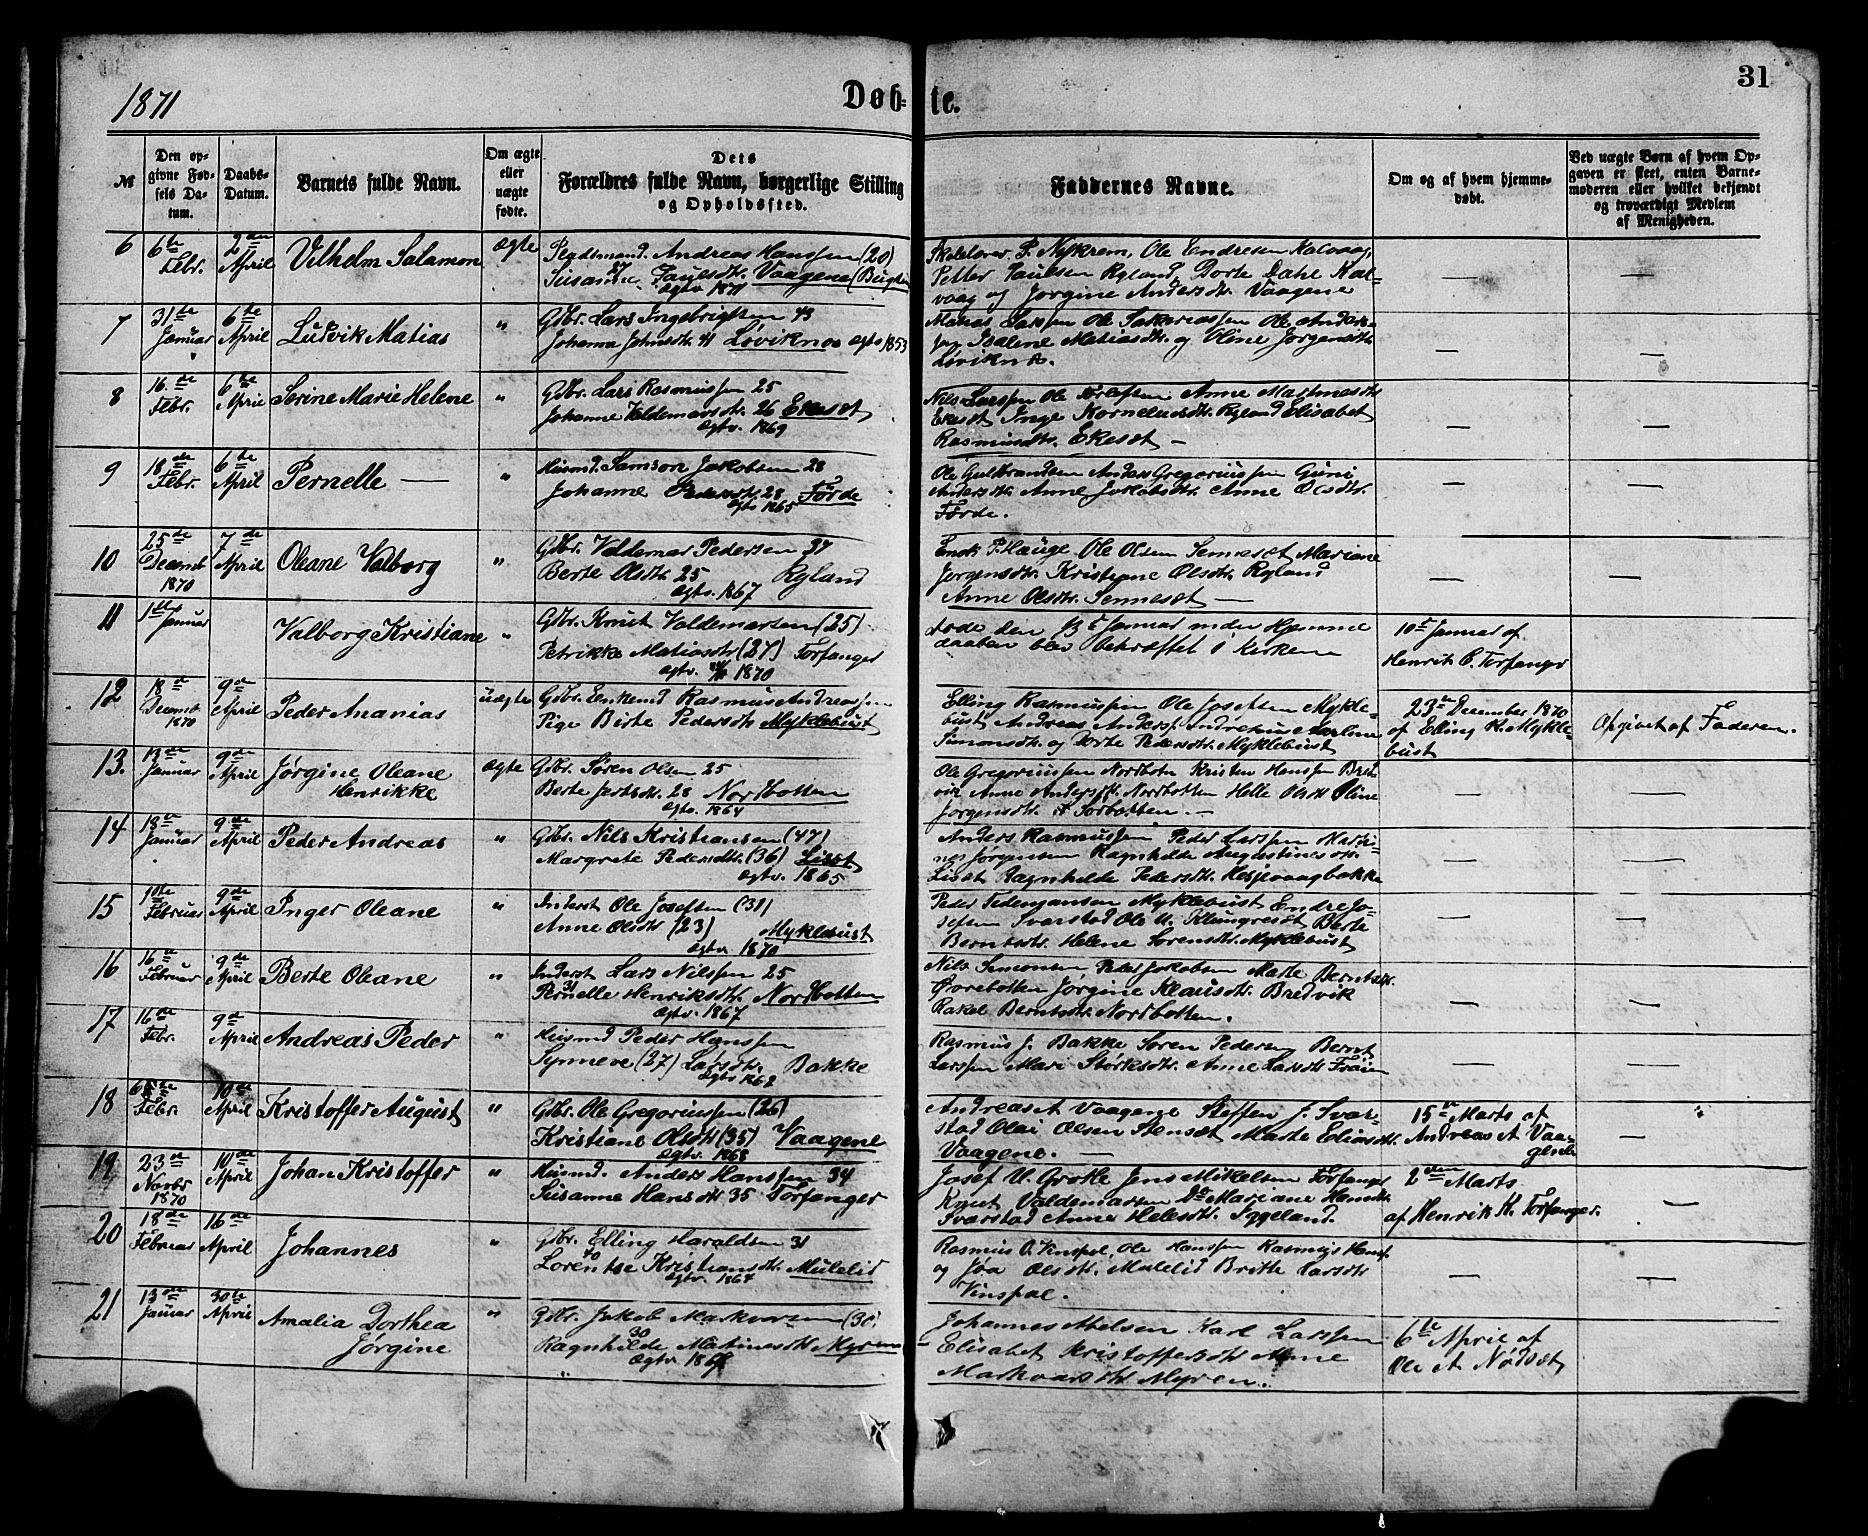 31
1871
Døb-te.
№
Den op-
givne Fød-
sels Da-
tum.
Daabs-
Datum.
Barnets fulde Navn.
Om ægte
eller
uægte
fødte.
Dets
Forældres fulde Navn, borgerlige Stilling
og Opholdssted.
Faddernes Navne.
Om og af hvem hjemme-
døbt.
Ved uægte Børn af hvem Op-
gaven er skeet, enten Barne-
moderen eller hvilket bekjendt
og troværdigt Medlem
af Menigheden.
6
6te
Febr.
2den
April
Vilhelm Salamon
ægte
Pladsmand. Andreas Hanssen (20)
Susanne Paulsdtr. Vaagene
Ægtv 1871
Skolelærer P. Nykrem, Ole Endresen Kalvaag,
Petter Paulsen Ryland, Dorte Dahl Kal-
vaag og Jørgine Andersdtr. Vaagene
—
—
7
31te
Januar
6te
April
Ludvik Matias
"
Gdbr. Lars Ingebrigtsen 43
Johanne Johnsdtr. 41 Løviknes Ægtv 1853
Larssen Ole Sakariassen Ole Anders-
sen Matiasdtr. og Oline Jørgensdtr.
Løviknes.
—
—
8
16de
Febr.
6te
April
Serine Marie Helene
"
Gdbr. Lars Rasmussen 25
Johanne Valdemarsdtr. 26 Ekeset
Ægtv. 1869
Nils Larssen Ole Anne Martinesdtr
Ekeset Inge Kornelusdtr. Ryland Elisabet
Rasmusdtr. Ekeset —
—
—
9
18de
Febr.
6te
April
Pernelle —
"
Husmd. Samson Jakobsen 28
Johanne Pedersdtr. 28 Førde
Ægtv 1865
Ole Gulbrandsen Anders Gregoriussen Guni
Andersdtr. Anne Jakobsdtr. Anne Olsdtr.
Førde.
—
—
10
25de
Decemb
1870
7de
April
Oleane Valborg
"
Gdbr. Valdemar Pedersen 37
Berte Olsdtr. 25 Ryland
Ægtv. 1867
Enok P. Hauge Ole Olsen Senneset Mariane
Jørgensdtr. Kristiane Olsdtr. Ryland
Anne Olsdtr. Senneset —
—
—
11
1ste Januar
Valborg Kristiane
"
Gdbr. Knut Valdemarsen (25)
Petrikke Matiasdtr (27) Torfanger
Ægtv. 1870
døde den Januar inden Hjemme
daaben blev bekræftet i Kirken
10de Januar af
Henrik C. Torfanger
12
18de
Decemb
1870
9de
April
Peder Ananias
uægte
Gdbr. Enkemd Rasmus Andreassen
Pige Birte Pedersdtr. Myklebust
Elling Rasmussen Ole Joseften Mykle-
bust Andreas Karline
Simonsdtr. og Dorte Pedersdtr. Myklebust
23de December 1870
af Elling R. Mykle-
bust
Opgivet af Faderen.
13.
13de
Januar
9de
April
Jørgine Oleane
Henrikke
ægte
Gdbr. Søren Olsen 25
Berte 28 Nordbotten
Ægtv. 1864
Ole Gregoriussen Nordbotn Kristen Hanssen Bred
vik Anne Nordbotten Helle Olsdtr Oline
Jørgensdtr. Sørbotten. —
—
—
14
18de
Januar
9de
April
Peder Andreas
"
Gdbr. Nils Kristiansen (47)
Margrete Pedersdtr. (36) Liset
Ægtv. 1865
Anders Rasmussen Peder Larssen
Jørgensen Ragnhilde Augustinesdtr.
Liset Ragnhilde Pedersdtr. Respvaagbakke
—
—
15
10de
Februar
9de
April
Inger Oleane
"
Inderst Ole Joseften (31)
Anne Olsdtr (23) Myklebust
Ægtv. 1870
Peder Tidemansen Myklebust Endre Jo-
sefsen Svarstad Ole U. Klungreset Berte
Berntsdtr. Helene Sørensdtr. Myklebust
—
—
16
16de
Februar
9de
April
Berte Oleane
"
Inderst Lars Nilssen 25
Pernelle 31 Henriksdtr. Nordbotten
Ægtv. 1867
Nils Simonsen Peder Jakobsen Marte Berntsdtr.
Øvrebotten Jørgine Klausdtr. Bredvik
Rakel Berntsdtr. Nordbotten.
—
—
17
16de
Febr.
9de
April
Andreas Peder
"
Husmd Peder Hanssen
Synneve (27) Larsdtr. Bakke
Ægtv 1862
Rasmus J. Bakke Søren Pedersen Bernt
Larssen Mari Størksdtr. Anne Larsdtr Frøien
—
—
18
Febr.
10de
April
Kristoffer August
"
Gdbr. Ole Gregoriussen (26)
Kristiane Olsdtr (35) Vaagene
Ægtv. 1868
Andreas A Vaagene Steffen J. Svar-
stad Olai Olsen Stenset Marte Eliasdtr.
Vaagene. —
15de Marts af
Andreas A Vaa-
gene
—
19
23de
Novbr
1870
10de
April
Johan Kristoffer
"
Husmd. Anders Hanssen 34
Susanne Hansdtr 35 Torfanger
Josef U. Grotle Jens Mikelsen Torfanger
Knut Valdemarsen Do Mariane Hansdtr
Svarstad Anne Helesdtr. Iggeland.
2den Marts
af Henrik K. Torfanger.
—
20
18de
Februar
16de
April
Johannes
"
Gdbr. Elling Haraldsen 31
Lorentse 40 Kristiansdtr. Mulelid
Ægtv. 1864
Rasmus O. Vinspol, Ole Hanssen Rasmus Hanss.
og Jøa Olsdtr. Mulelid Britte Larsdtr
Vinspol.
—
—
21
13de
Januar
30te
April
Amalia Dorthea
Jørgine
"
Gdbr. Jakob Markvorsen (30)
Ragnhilde 30 Matinesdtr. Myren
Ægtv
"
Johannes Abelsen Karl Larssen
Elisabet Kristoffersdtr Anne
Markvorsdtr Myren.
6te April af
Ole A Nødset